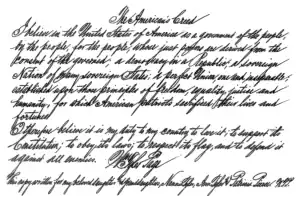 The American's Creed
I believe in the United States of America as a government of the people,
by the people, for the people, whose just powers are derived from the
consent of the governed; a democracy in a Republic; a sovereign
Nation of many sovereign States; a perfect Union, one and inseparable;
established upon those principles of freedom, equality, justice, and
humanity, for which American patriots sacrificed their lives and
fortunes
I therefore believe it is my duty to my country to love it; to support its
Constitution; to obey its laws; to respect its flag, and to defend it
against all enemies.
This copy written for my beloved